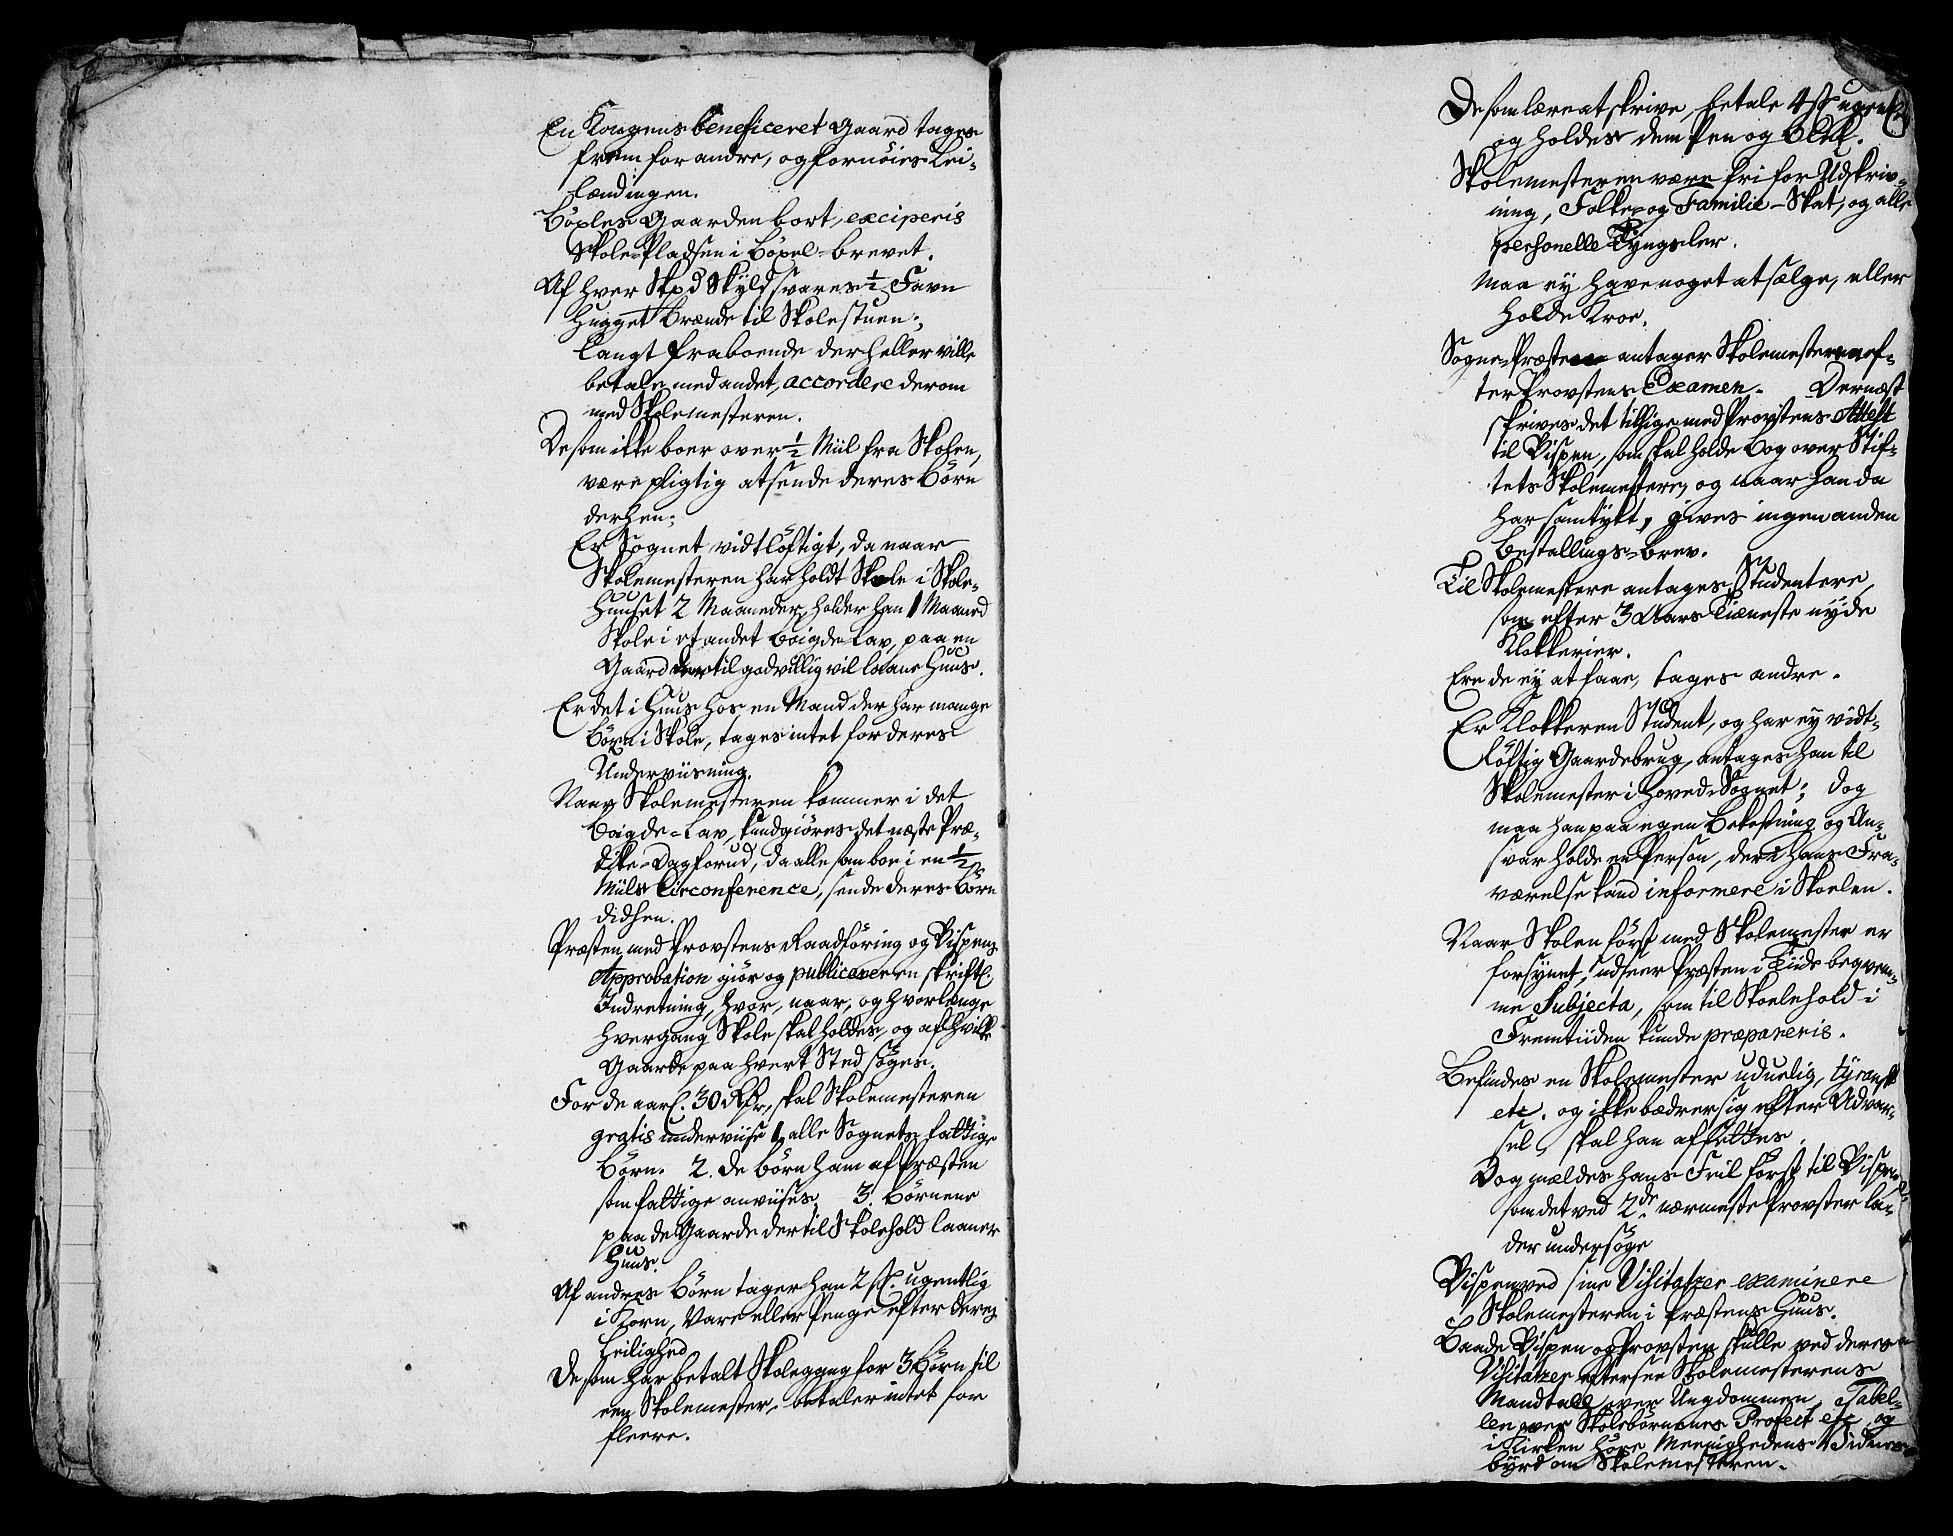 En Kongens beneficeret Gaard tages
frem for andre, og fornøies Lei-
lændingen.
Böxles Gaarden bort, exciperis
Skole-Pladsen i Böxel-brevet.
Af hver Skpd Skyld svares ½ Favn
hugget Brænde til Skolestuen;
langt fraboende der heller ville
betale med andet, accordere derom
med Skolemesteren.
De som ikke boer over ½ Miil fra Skolen,
være pligtig at sende deres Börn
derhen;
Er Sognet vidtlöftigt, da naar
Skolemesteren har holdt Skole i Skole-
Huuset 2 Maaneder, holder han 1 Maaned
Skole i et andet Boigde-Lav, paa en
Gaard der til godvillig vil laane Huus.
Er det i Huus hos en Mand der har mange
Börn i Skole, tages intet for deres
Underviisning.
Naar Skolemesteren kommer i det
Boigde-Lav, kundgiöres det næste Præ-
dike-Dag forud, da alle som boe i en ½
Miils Circonference, sende deres Börn
didhen.
Præsten med Provstens Raadföring og Bispens
Approbation giör og publicerer en skriftl.
Indretning, hvor, naar, og hvorlænge
hvergang Skole skal holdes, og af hvilke
Gaarde paa hvert Sted söges.
For de aarl. 30 Rdr, skal Skolemesteren
gratis underviise 1. alle Sognets fattige
Börn. 2. de Börn ham af Præsten
som fattige anviises, 3. Börnene
paa de Gaarde der til Skolehold laaner
Huus.
Af andres Börn tager han 2 s. ugentlig
i Korn, Vare eller Penge efter deres
Leilighed
De som har betalt Skolegang for 3 Börn til
een Skolemester, betaler intet for
fleere.
De som lære at skrive, betale 4 s ugentl.
og holdes dem Pen og Blek.
Skolemesteren være fri for Udskriv-
ning, Folke- og Familie-Skat, og alle
personelle Tyngsler.
Maa ey have noget at sælge, eller
holde Kroe.
Sogne-Præsten antager Skolemesteren ef-
ter Provstens Examen. Dernæst
skrives det tillige med Provstens Attest
til Bispen, som skal holde Bog over Stif-
tets Skolemestere, og naar han da
har samtykt, gives ingen anden
Bestallings-Brev.
Til Skolemestere antages Studentere,
som efter 3 Aars Tieneste nyde
Klokkerier.
Ere de ey at faae, tages andre.
Er Klokkeren Student, og har ey vidt-
löftig Gaardebrug, antages han til
Skolemester i Hoved-Sognet; dog
maa han paa egen Bekostning og An-
svar holde en Person, der i hans Fra-
værelse kand informere i Skoelen.
Naar Skolen först med Skolemester er
forsynet, udseer Præsten i Tiide beqvem-
me Subjecta, som til Skoelehold i
Fremtiiden kunde præpareris.
Befindes en Skolemester uduelig, tyransk
etc. og ikke bædrer sig efter Advar-
sel, skal han affsettes.
Dog mældes hans Feil först til Bispen,
som det ved 2de nærmeste Provster la-
der undersöge
Bispen ved sine Visitatzer examinere
Skolemesteren i Præstens Huus.
Baade Bispen og Provsten skulle ved deres
Visitatzer eftersee Skolemesterens
Mandtall over Ungdommen, Tabel-
len over Skolebörnenes Profect etc, og
i Kirken höre Menighedens Vidnes-
byrd om Skolemesteren.